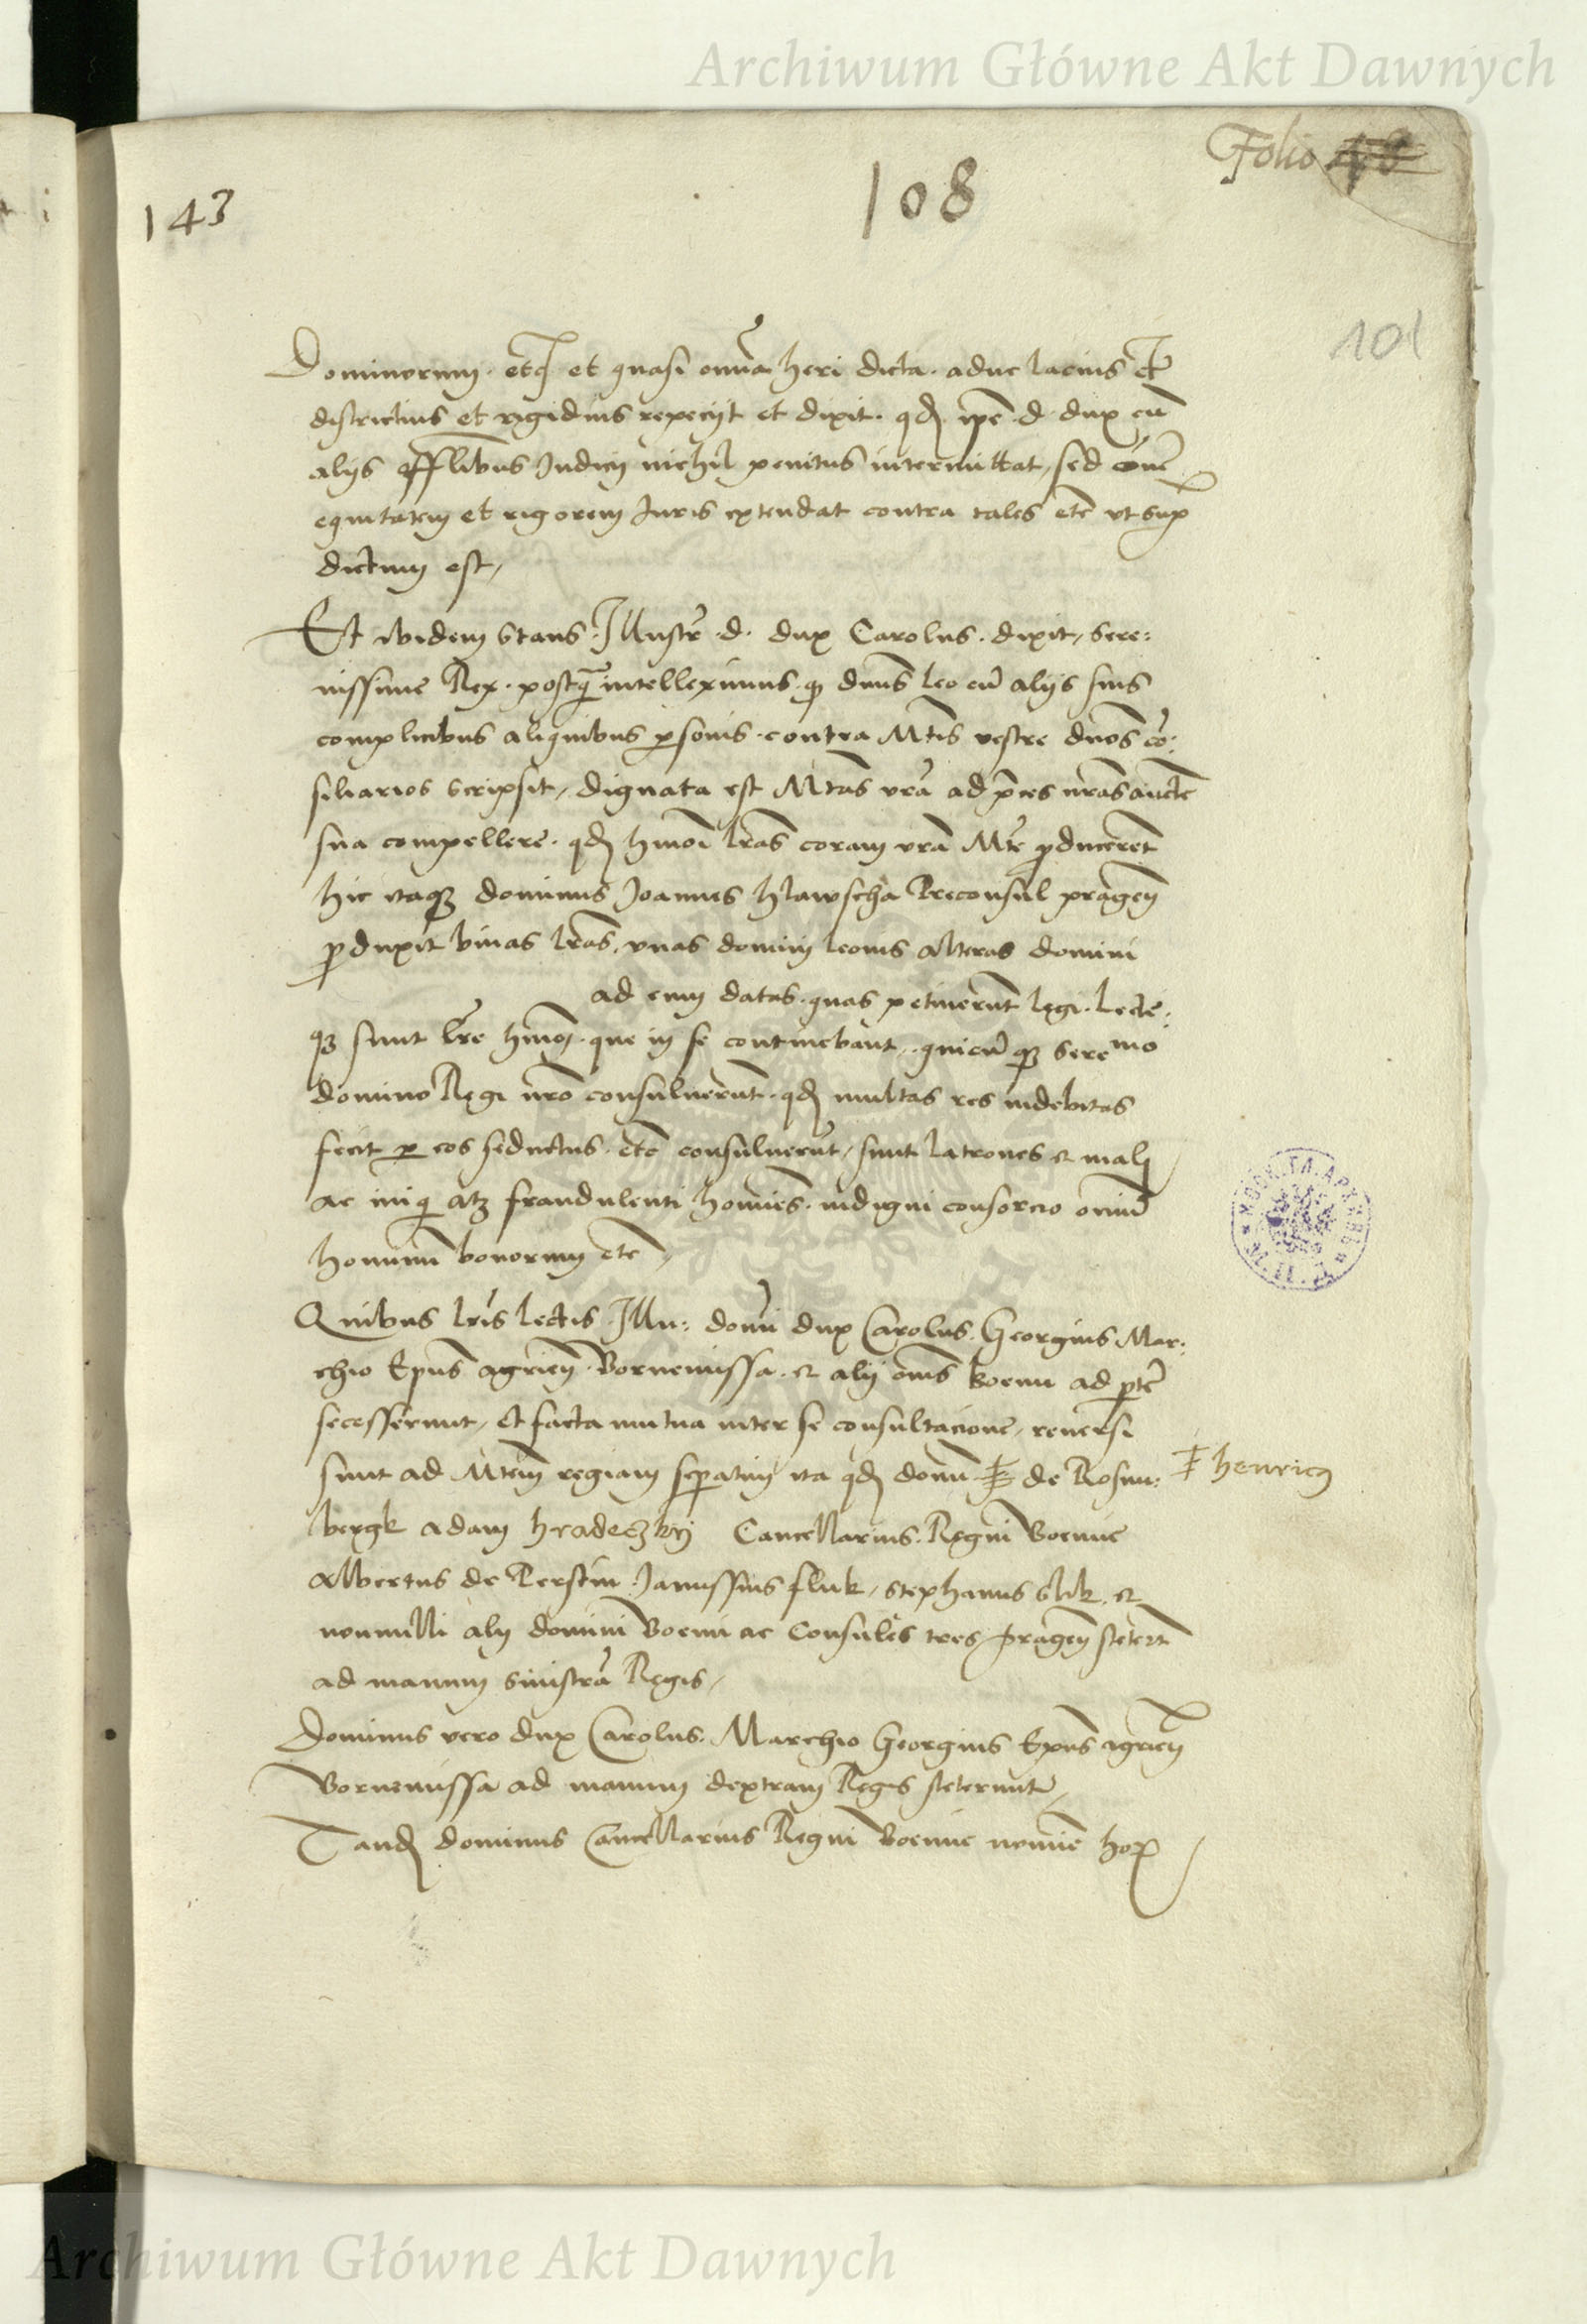 Archiwum Główne Akt Dawnych
Folio
108
143
101
Dominorum. et et quasi omnia heri dicta. aduc lacius et
districtius et rigidius repeciit et dixit. qd ipe d. dux cū
aliis offlibus Iudicij nichil penitus intermittat, sed omē
equitatem et rigorem Iuris extendat contra tales etc vt sup
dictum est,
Et ibidem stans Illustr. d. dux Carolus. dixit, Sere:
nissime Rex. postq̄ intelleximus. q dnus Leo cū aliis suis
complicibus aliquibus psonis. contra Mtis vestre dnos cō:
siliarios scripsit, dignata est Mtas vrā ad pces nrās aucte
sua compellere. qd hmoi lrās coram vrā Mte pducerent
hic itaq dominus Joannes hlawscha Preconsul pragen
pduxit binas lrās, vnas domini leonis alteras domini
ad eum datas. quas petiuerunt legi. Lecte:
q sunt lrē hmoi. que in se continebant. quicū q Sere mo
domino Regi nrō consuluerunt. qd multas res indebitas
fecit p eos seductus. etc consuluerūt, sunt latrones et mali
ac iniq atq fraudulenti homies. indigni consorcio omniū
hominū bonorum etc,
Quibus lris lectis. Illu: domi dux Carolus. Georgius Mar:
chio Epus agrien. Bornemissa. et alij oms boemi ad pte
secesserunt, Et facta mutua inter se consultacione, reuersi
sunt ad Mtem regiam sepatim ita qd domi de Rosnu: henricus
bergk adam hradeczky Cancellarius. Regni Boemie
Albertus de Perstin. Janussius fluk, Stephanus slik. et
nonnulli alij domini Boemi ac Consules tres pragen steterūt
ad manum sinistrā Regis,
Dominus vero dux Carolus. Marchio Georgius Epus agrien
Bornemissa ad manum dextram Regis steterunt,
Tand dominus Cancellarius Regni Boemie nomie hor
Archiwum Główne Akt Dawnych